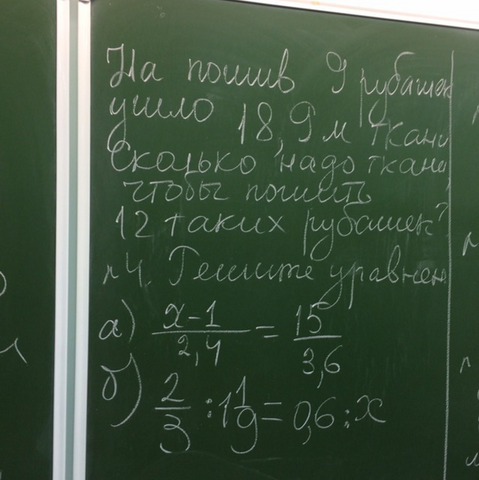 На пошив 9 рубашек
ушло 18,9 м ткани
Сколько надо ткани,
чтобы пошить
12 таких рубашек?
№4. Решите уравнен
а) x-1/2,4 = 15/3,6
б) 2/3 : 1 1/9 = 0,6 : x